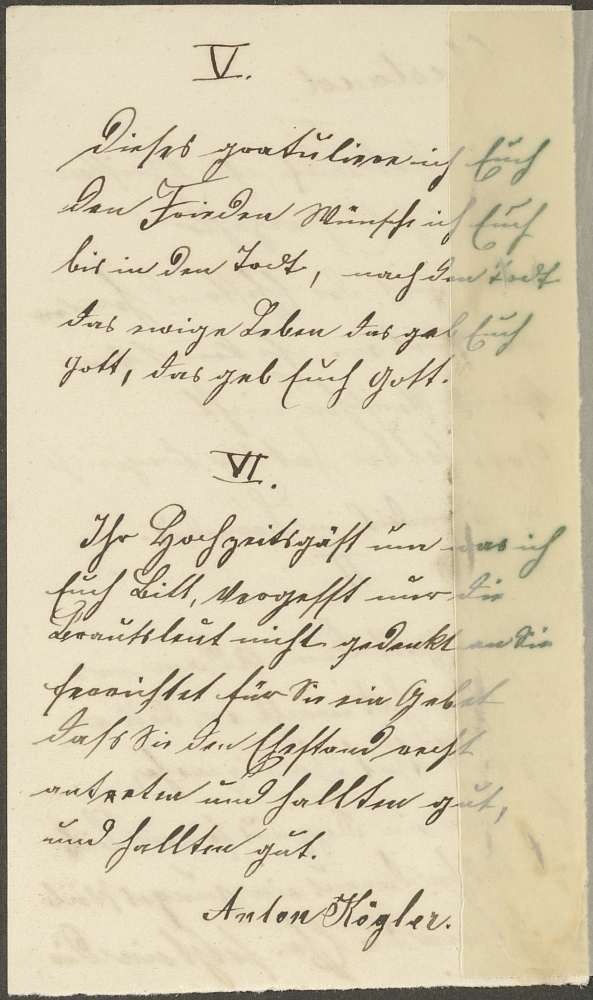 V.
Dieses gratuliere ich Euch
den Frieden Wünsch ich Euch
bis in den Todt, nach den Todt
das ewige Leben das geb Euch
Gott, das geb Euch Gott.
VI.
Ihr Hochzeitsgäst um was ich
Euch Bitt, vergesst nur die
Brautsleut nicht gedenkt an Sie
ferrichtet für Sie ein Gebet
dass Sie den Ehestand recht
antreten und hallten gut,
und hallten gut.
Anton Kögler.